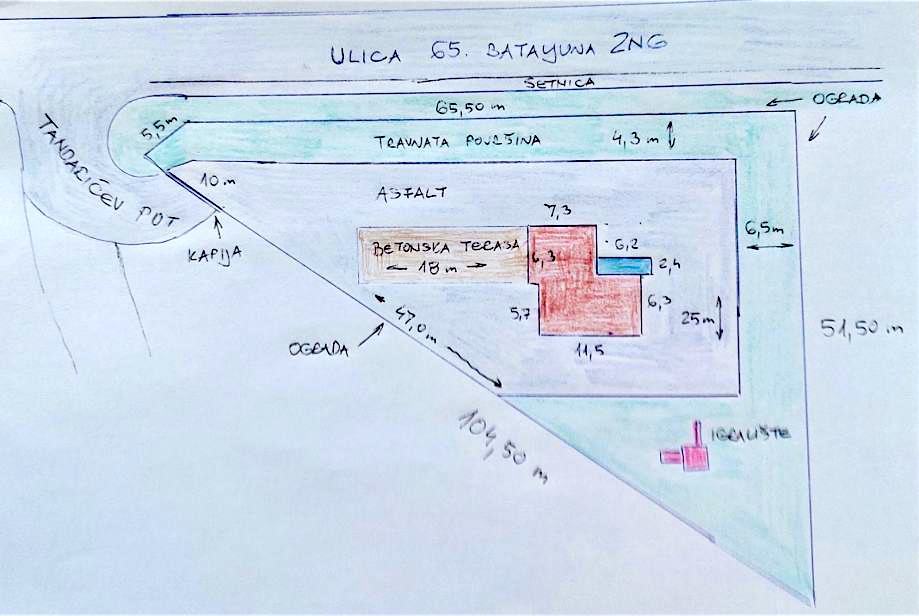 ULICA 65. BATAYUNA ZNG
ŠETNICA
65,50 m
OGRADA
5,5 m
TRAVNATA POVRŠINA
4,3 m
TANDARIĆEV POT
10 m
ASFALT
KAPIJA
7,3
BETONSKA TERASA
18 m
6,3
6,2
2,4
6,5m
5,7
6,3
25m
11,5
47,0 m
OGRADA
51,50 m
104,50 m
IGRALIŠTE